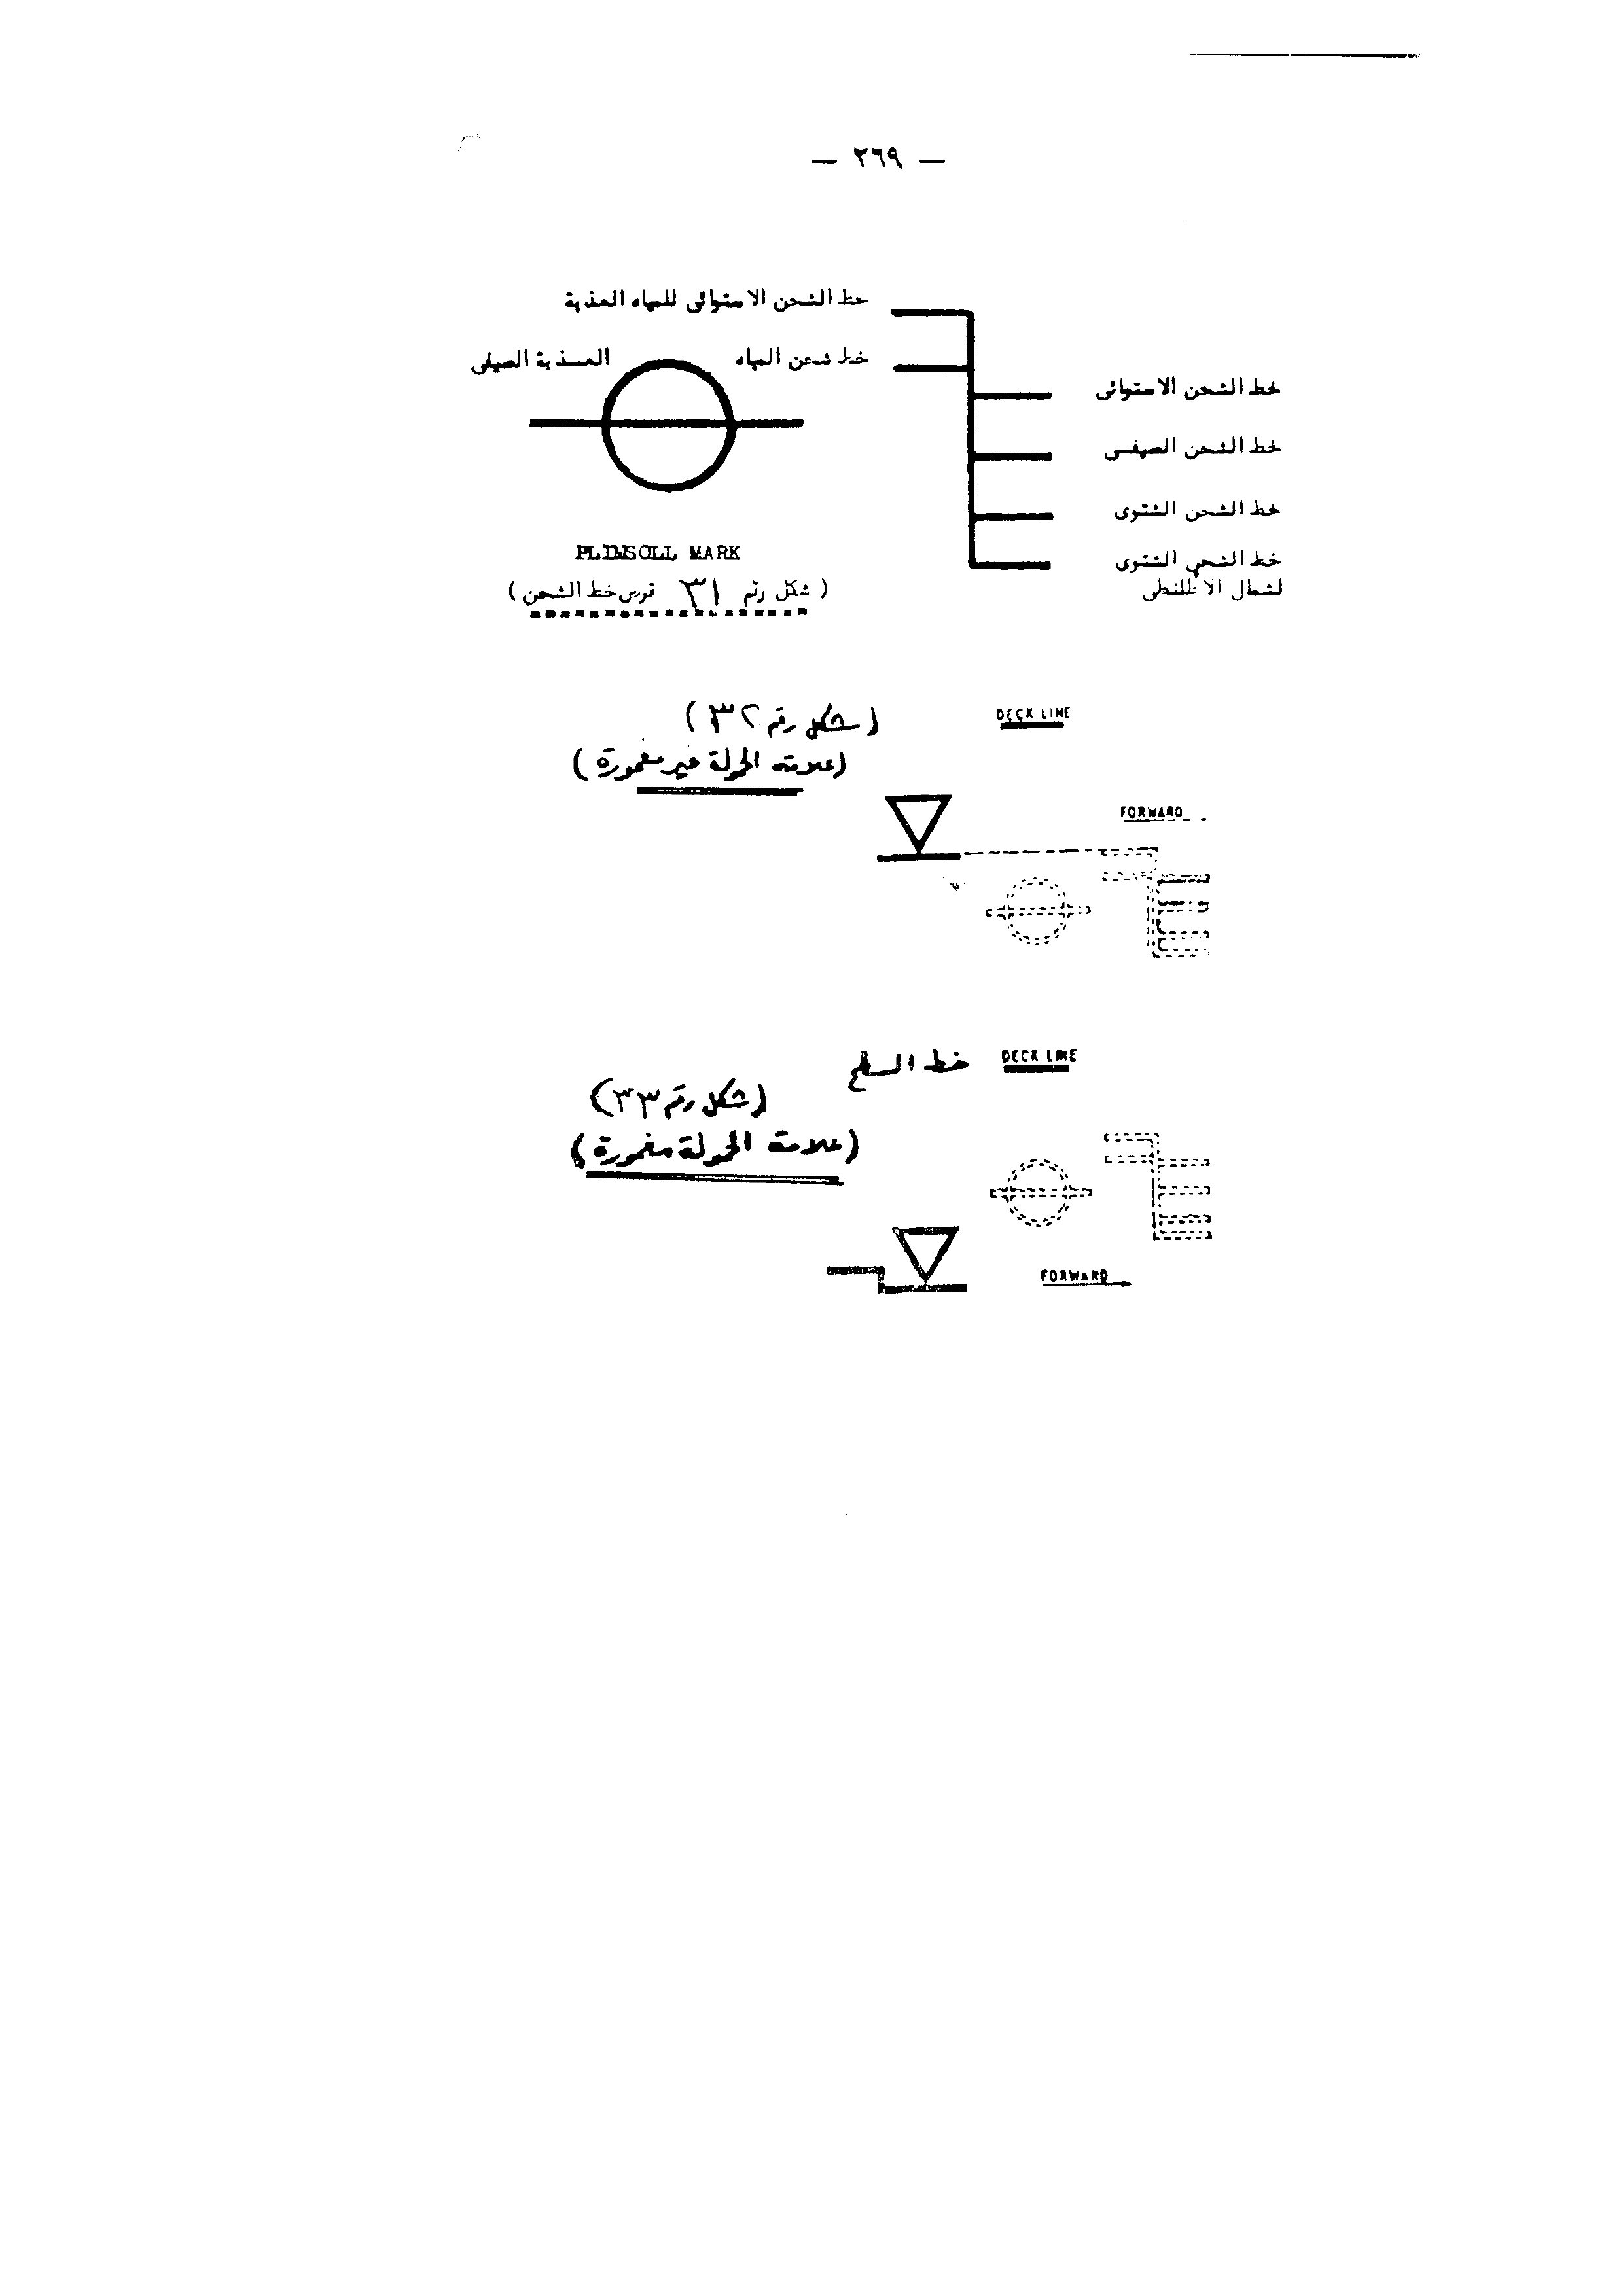 — ٢٦٩ —
خط الشحن الاستوائى للمياه العذبة
خط شحن المياه العذبة الصيفى
خط الشحن الاستوائى
خط الشحن الصيفى
خط الشحن الشتوى
خط الشحن الشتوى
لشمال الاطلنطى
PLIMSOLL MARK
( شكل رقم ٣١ قرص خط الشحن )
DECK LINE
(شكل رقم ٣٢)
(علامة الحمولة غير مغمورة)
FORWARD
DECK LINE
خط السطح
(شكل رقم ٣٣)
(علامة الحمولة مغمورة)
FORWARD